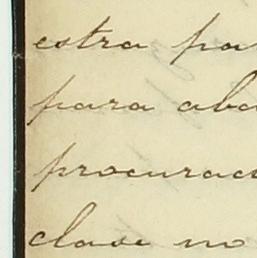 estra pa
para aba
procurac
clase no